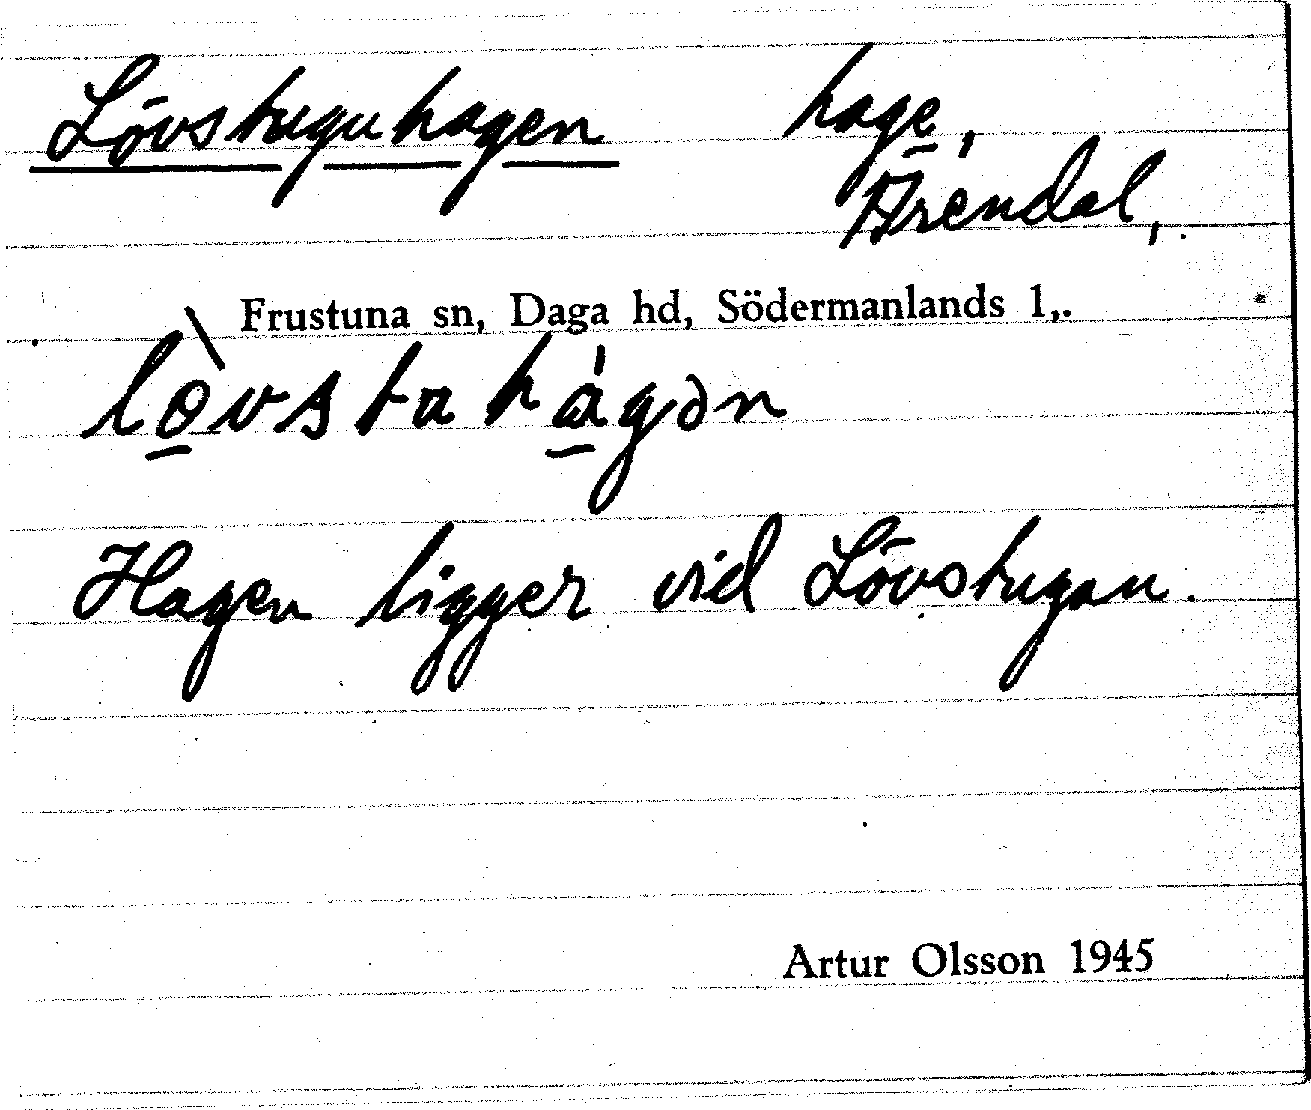 Lövstuguhagen hage,
Ärendal,.
Frustuna sn, Daga hd, Södermanlands l,.
lò̲vstahá̲gən
Hagen ligger vid Lövstugan.
Artur Olsson 1945